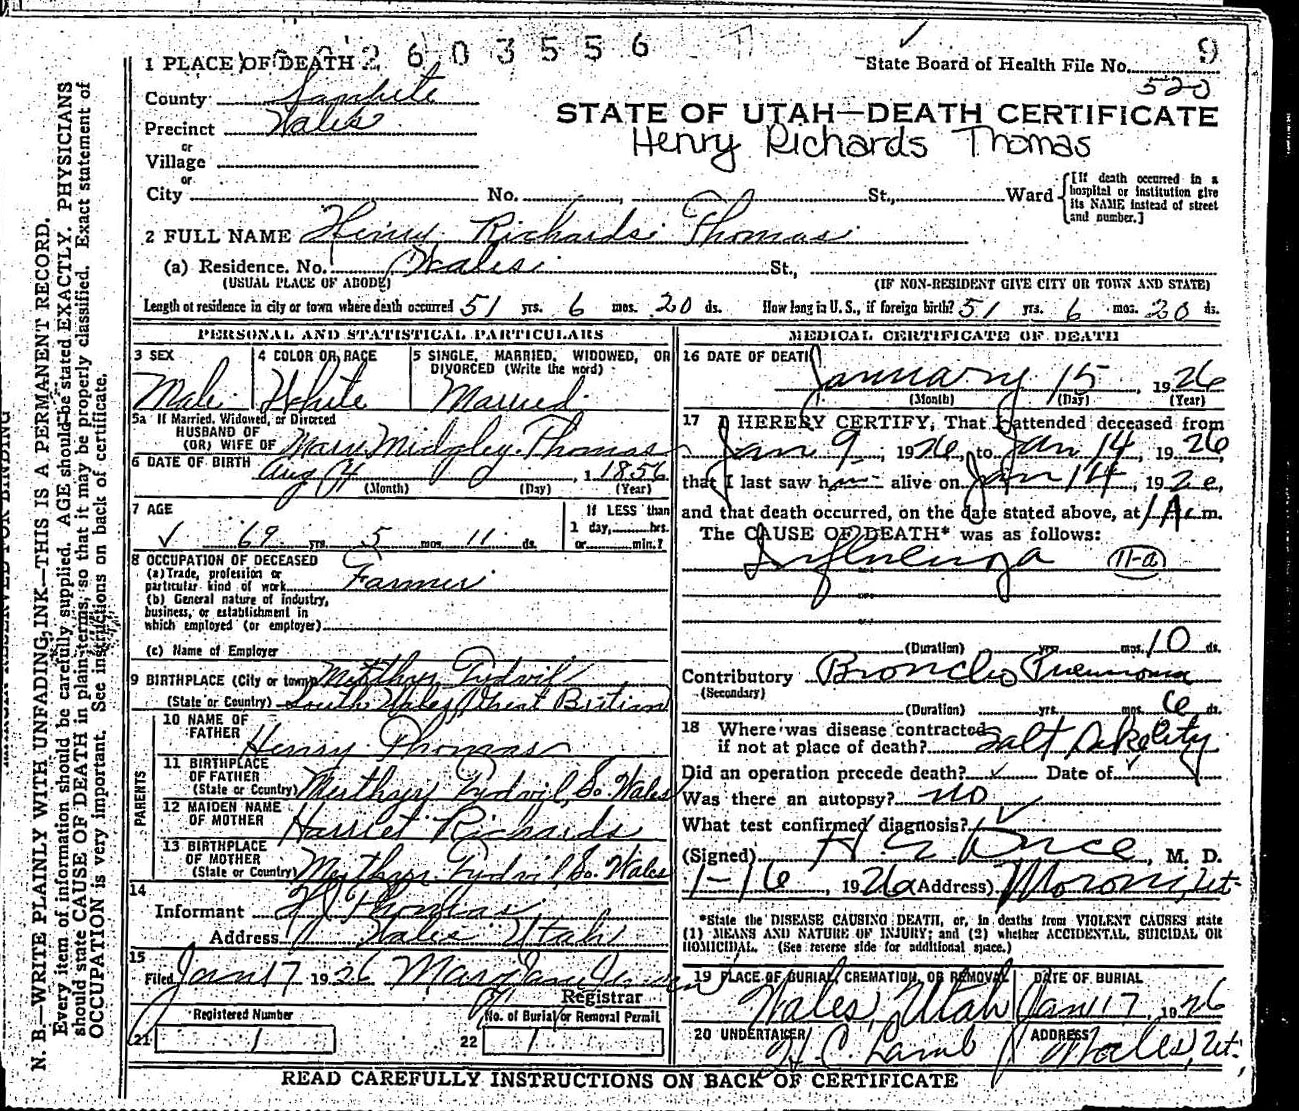 2603556
9
1 PLACE OF DEATH
State Board of Health File No.
520
County Sanpete
STATE OF UTAH—DEATH CERTIFICATE
Precinct Wales
Henry Richards Thomas
or
Village
or
City No. St., Ward
[If death occurred in a hospital or institution give its NAME instead of street and number.]
2 FULL NAME Henry Richards Thomas
(a) Residence. No. Wales St.,
(USUAL PLACE OF ABODE) (IF NON-RESIDENT GIVE CITY OR TOWN AND STATE)
Length of residence in city or town where death occurred 51 yrs. 6 mos. 20 ds. How long in U. S., if foreign birth? 51 yrs. 6 mos. 20 ds.
PERSONAL AND STATISTICAL PARTICULARS
3 SEX
Male
4 COLOR OR RACE
White
5 SINGLE, MARRIED, WIDOWED, OR DIVORCED (Write the word)
Married
5a If Married, Widowed, or Divorced
HUSBAND OF
(OR) WIFE OF Mary Midgley Thomas
6 DATE OF BIRTH Aug 4 1 1856
(Month) (Day) (Year)
7 AGE
69 yrs. 5 mos. 11 ds.
If LESS than
1 day, hrs.
or min.?
8 OCCUPATION OF DECEASED
(a) Trade, profession or
particular kind of work Farmer
(b) General nature of industry,
business, or establishment in
which employed (or employer)
(c) Name of Employer
9 BIRTHPLACE (City or town) Merthyr Tydvil
(State or Country) South Wales, Great Britian
PARENTS
10 NAME OF
FATHER Henry Thomas
11 BIRTHPLACE
OF FATHER
(State or Country) Merthyr Tydvil, So. Wales
12 MAIDEN NAME
OF MOTHER Harriet Richards
13 BIRTHPLACE
OF MOTHER
(State or Country) Merthyr Tydvil, So. Wales
14
Informant Thomas
Address Wales Utah
15
Filed Jan 17 1926 Mary Jane
Registrar
Registered Number
21 1
No. of Burial or Removal Permit
22 1
MEDICAL CERTIFICATE OF DEATH
16 DATE OF DEATH
January 15, 1926
(Month) (Day) (Year)
17 I HEREBY CERTIFY, That I attended deceased from
Jan 9, 1926, to Jan 14, 1926,
that I last saw h alive on Jan 14, 1926,
and that death occurred, on the date stated above, at 1 A. m.
The CAUSE OF DEATH* was as follows:
Influenza 11-a
(Duration) yrs. mos. 10 ds.
Contributory Broncho Pneumonia
(Secondary)
(Duration) yrs. mos. 6 ds.
18 Where was disease contracted
if not at place of death? Salt Lake City
Did an operation precede death? Date of
Was there an autopsy? no
What test confirmed diagnosis?
(Signed) M. D.
1-16, 1926 (Address) Moroni, Ut.
*State the DISEASE CAUSING DEATH, or, in deaths from VIOLENT CAUSES state
(1) MEANS AND NATURE OF INJURY; and (2) whether ACCIDENTAL, SUICIDAL OR
HOMICIDAL. (See reverse side for additional space.)
19 PLACE OF BURIAL, CREMATION, OR REMOVAL
Wales, Utah
DATE OF BURIAL
Jan 17 1926
20 UNDERTAKER
H. C. Lamb
ADDRESS
Wales, Ut.
READ CAREFULLY INSTRUCTIONS ON BACK OF CERTIFICATE
N. B.—WRITE PLAINLY WITH UNFADING INK—THIS IS A PERMANENT RECORD.
Every item of information should be carefully supplied. AGE should be stated EXACTLY. PHYSICIANS
should state CAUSE OF DEATH in plain terms, so that it may be properly classified. Exact statement of
OCCUPATION is very important. See instructions on back of certificate.